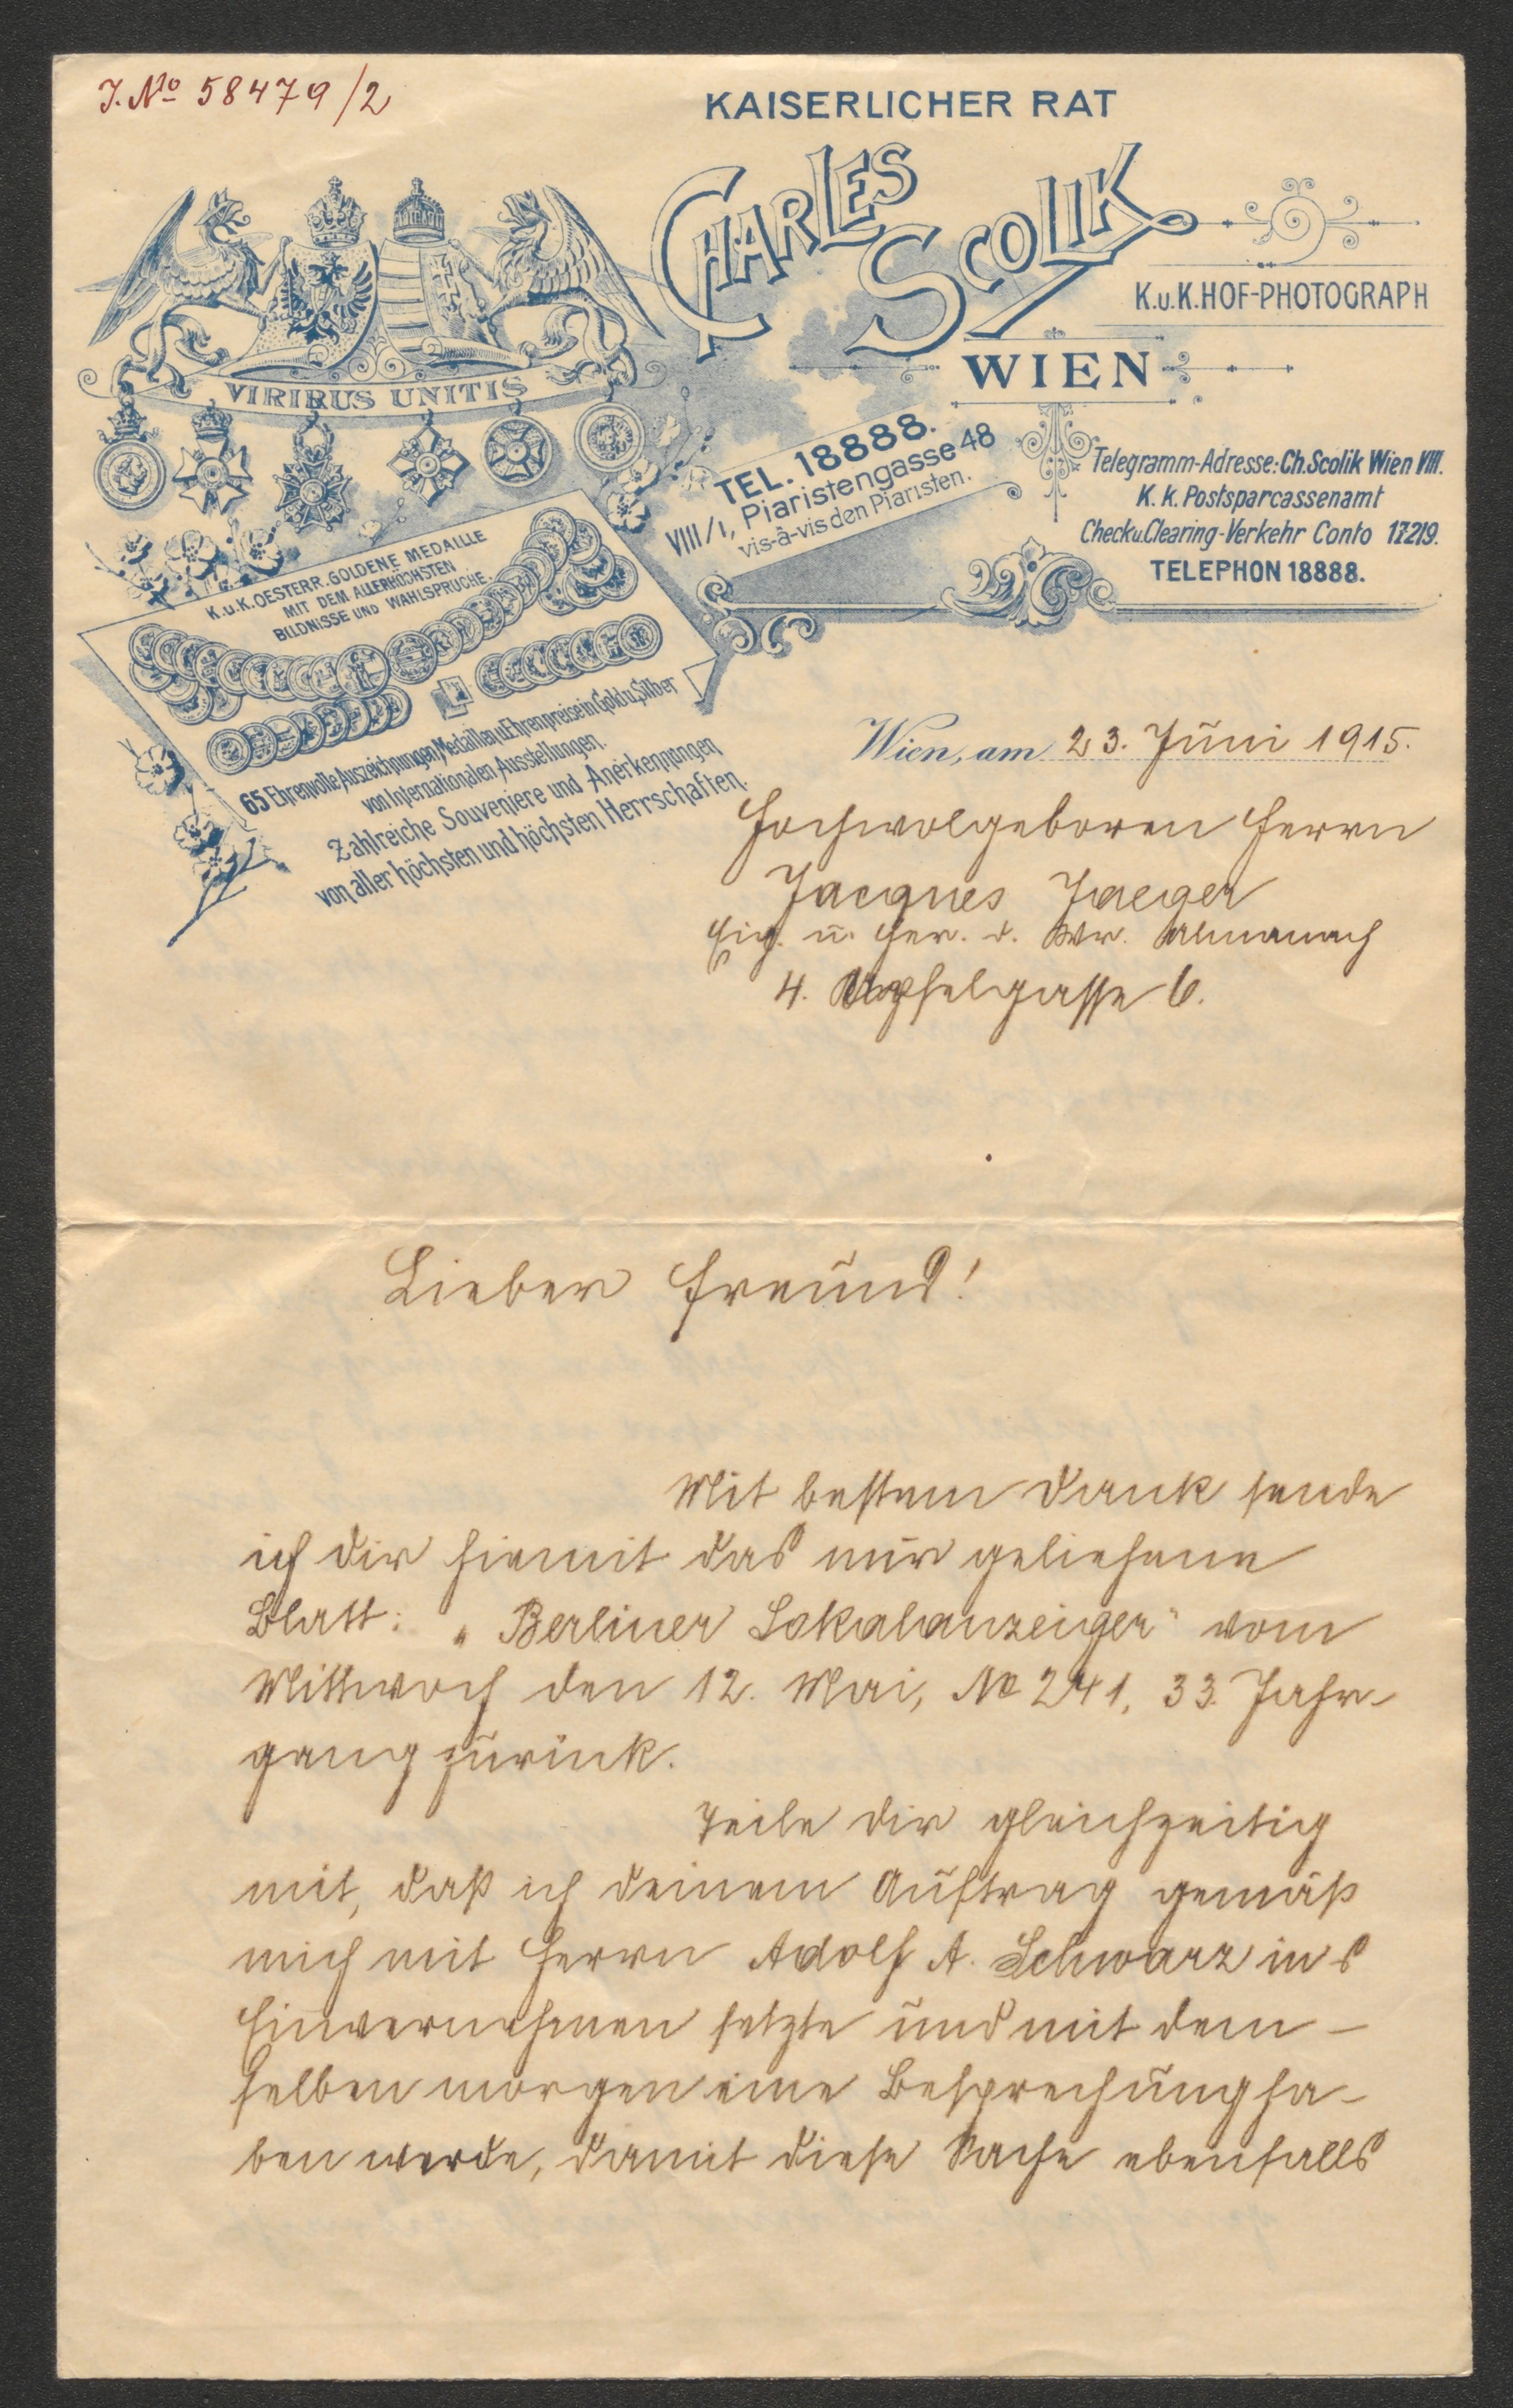 J. No 58479/2
KAISERLICHER RAT
CHARLES SCOLIK
K.u.K.HOF-PHOTOGRAPH
WIEN
VIRIBUS UNITIS
TEL. 18888.
VIII/1, Piaristengasse 48
vis-à-vis den Piaristen.
Telegramm-Adresse: Ch. Scolik Wien VIII.
K. k. Postsparcassenamt
Check u. Clearing-Verkehr Conto 17219.
TELEPHON 18888.
K.u.K. OESTERR. GOLDENE MEDAILLE
MIT DEM ALLERHÖCHSTEN
BILDNISSE UND WAHLSPRUCHE.
65 Ehrenvolle Auszeichnungen, Medaillen u. Ehrenpreise in Gold u. Silber
von Internationalen Ausstellungen.
Zahlreiche Souveniere und Anerkennungen
von aller höchsten und höchsten Herrschaften.
Wien, am 23. Juni 1915.
Hochwolgeboren Herrn
Jacques Jaeger
Eig. u. Her. d. Wr. Almanach
4. Apfelgasse 6.
Lieber Freund!
Mit bestem Dank sende
ich dir hiemit das mir geliehene
Blatt: „Berliner Lokalanzeiger" vom
Mittwoch den 12. Mai, No 241, 33. Jahr-
gang zurück.
Teile dir gleichzeitig
mit, daß ich deinem Auftrag gemäß
mich mit Herrn Adolf A. Schwarz ins
Einvernehmen setzte und mit dem-
selben morgen eine Besprechung ha-
ben werde, damit diese Sache ebenfalls